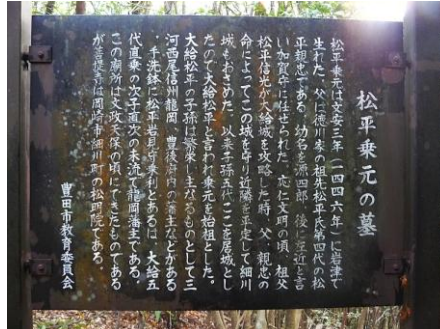 松平乗元の墓
松平乗元は文安三年(一四四六年)に岩津で
生れた。父は徳川家の祖先松平太郎第四代の松
平親忠である 幼名を源四郎 後に左近と言
い加賀守に任せられた。応仁文明の頃、祖父
松平信光が大給城を攻略した時、父 親忠の
命によってこの城を守り近隣を平定して細川
城もおさめた。以来子孫五代ここを居城とし
たので大給松平と言われ乗元を始祖とした。
大給松平の子孫は繁栄し主なるものとして三
河西尾信州龍岡 豊後府内の藩主などがある
・手洗鉢に松平岩見守乗利とあるは、大給五
代直乗の次子直次の末流で龍岡藩主である。
この廟所は文政天保の頃にできたものである
が菩提寺は岡崎市細川町の松明院である。
豊田市教育委員会